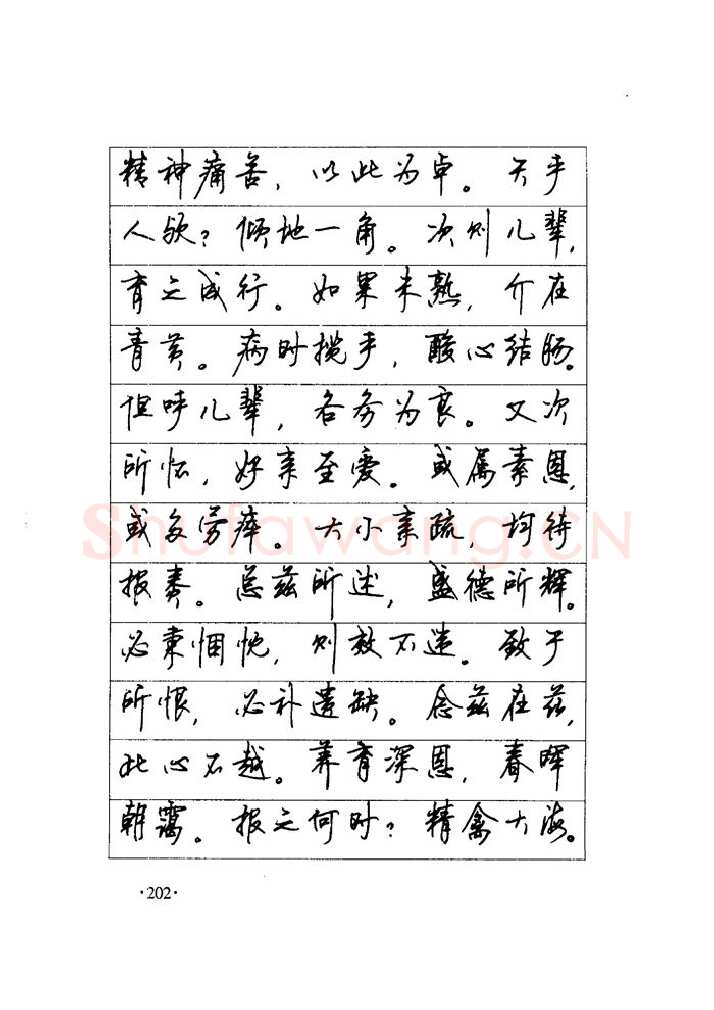 精神痛苦，以此为卓。天乎
人欤？倾地一角。次则儿辈，
育之成行。如果未熟，介在
青黄。病时揽手，酸心结肠。
但呼儿辈，各务为良。又次
所怀，好亲至爱。或属素恩，
或多劳瘁。大小亲疏，均待
报赉。总兹所述，盛德所辉。
必秉悃忱，则效不违。致于
所恨，必补遗缺。念兹在兹，
此心不越。养育深恩，春晖
朝霭。报之何时？精禽大海。
·202·
Shufawang.CN